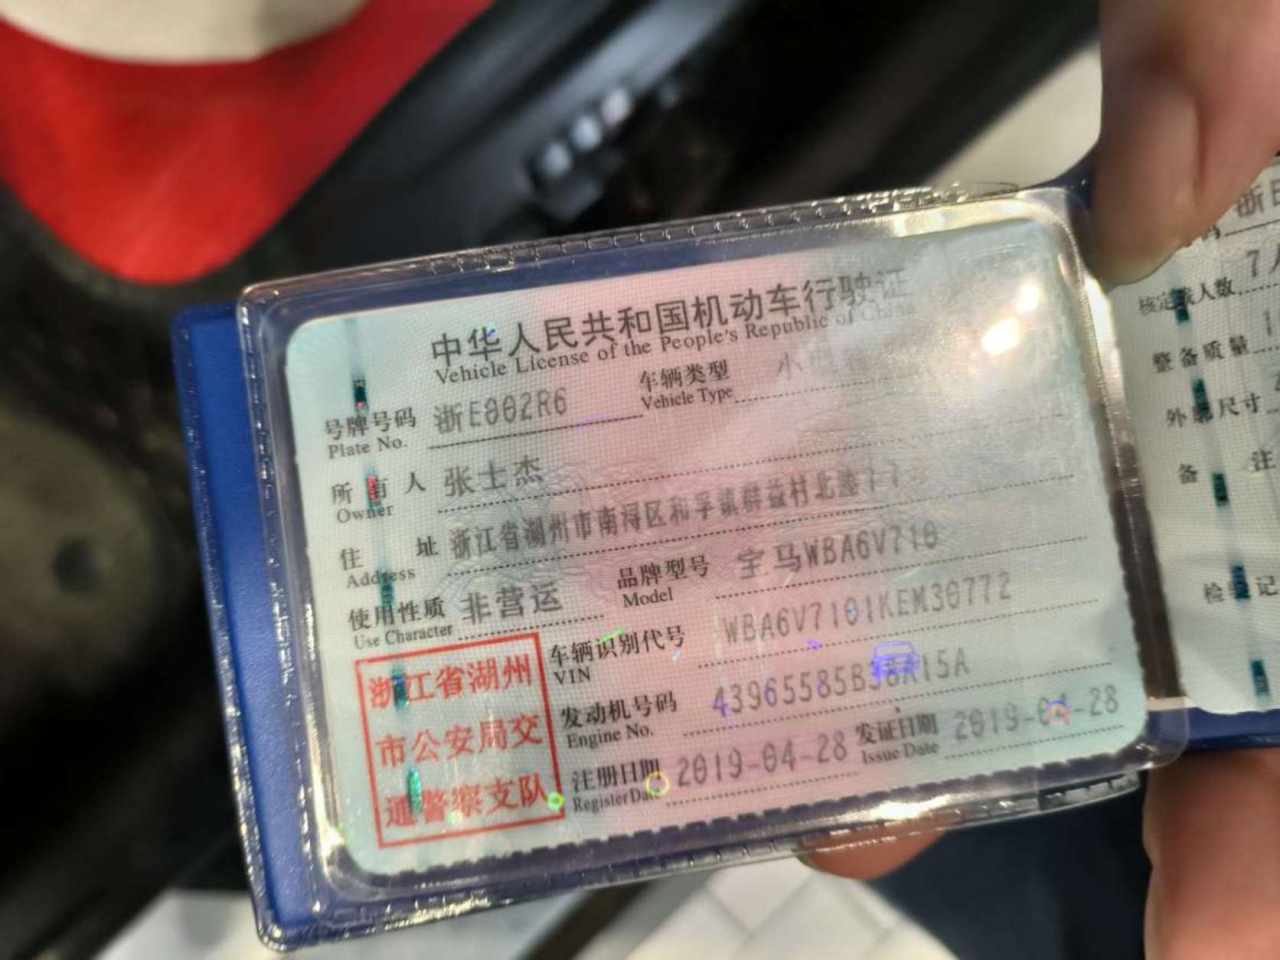 中华人民共和国机动车行驶证
Vehicle License of the People's Republic of China
号牌号码 浙E002R6 车辆类型 小
Plate No. Vehicle Type
所有人 张士杰
Owner
住址 浙江省湖州市南浔区和孚镇群益村北
Address
使用性质 非营运 品牌型号 宝马WBA6V710
Use Character Model
车辆识别代号 WBA6V7101KEM30772
VIN
发动机号码 43965585B38A15A
Engine No.
注册日期 2019-04-28 发证日期 2019-04-28
Register Date Issue Date
浙江省湖州
市公安局交
通警察支队
浙E
核定载人数 7人
整备质量 1
外廓尺寸
备 注
检验记